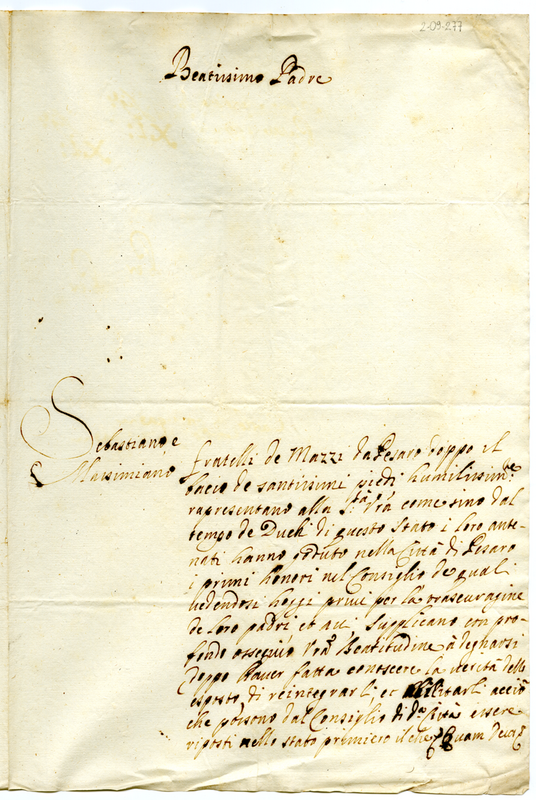 2-09-277
Beatissimo Padre
Sebastiano, e
Massimiano
fratelli de Mazzi da Pesaro doppo il
bacio de santissimi piedi humilissimte
rapresentano alla Sta Vra come sino dal
tempo de Duchi di questo Stato i loro ante-
nati hanno goduto nella Città di Pesaro
i primi honori nel Consiglio de quali
vedendosi hoggi privi per la trascuragine
de loro padri et avi supplicano con pro-
fondo ossequio Vra Beatitudine à degnarsi
doppo haver fatta conoscere la verità dello
esposto di reintegrarli, et abilitarli acciò
che possono dal Consiglio di da Città essere
riposti nello stato primiero il che Quam Deus